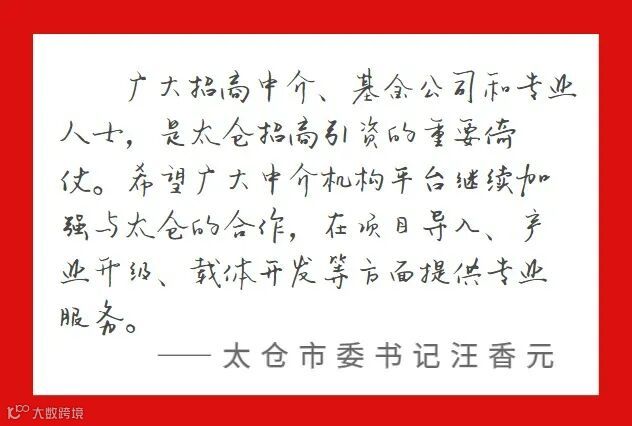 广大招商中介、基金公司和专业
人士，是太仓招商引资的重要倚
仗。希望广大中介机构平台继续加
强与太仓的合作，在项目导入、产
业升级、载体开发等方面提供专业
服务。
——太仓市委书记汪香元
大数跨境